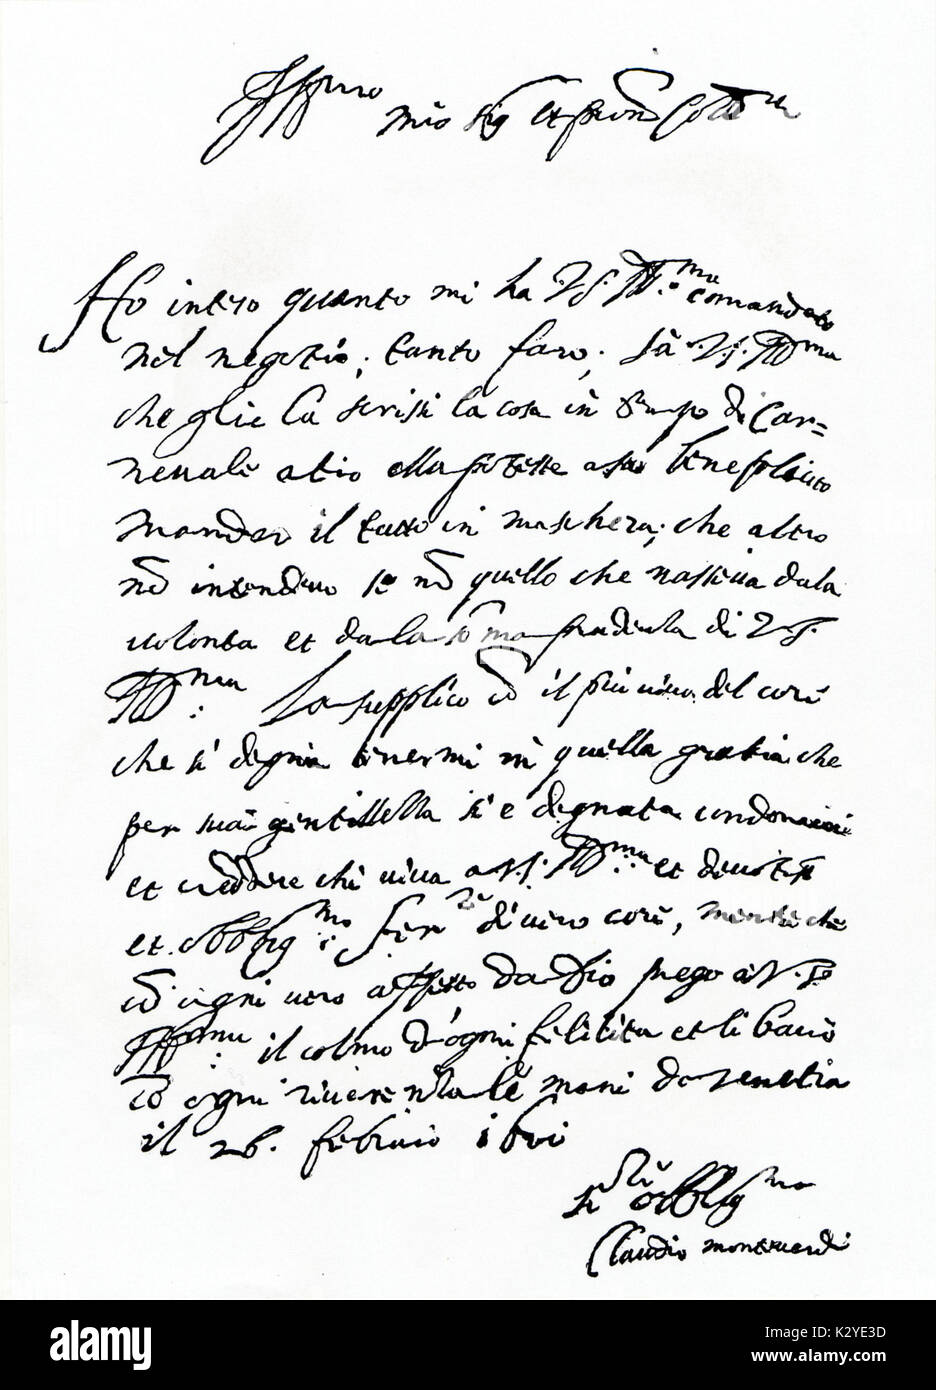 Ill.mo mio sig et pron Coll.mo
Ho inteso quanto mi ha V.S. Ill.ma comandato
nel negotio, tanto farò, sà V.S. Ill.ma
che glie la scrissi la cosa in tempo di Car=
nevale atiò ella potesse a suo beneplacito
mandar il tutto in maschera; che altro
nō intendevo se nō quello che nasseva dala
volonta et dala prudenza di V.S.
Ill.ma La supplico cō il più vivo del core
che si degnia tenermi in quella gratia che
per sua gentillezza si è degnata condonarmi
et credere che viva a V.S. Ill.ma et
et obblig.mo ser.re di vero core, mentre che
cō ogni vero affetto da Dio prego a V.S.
Ill.ma il colmo d'ogni felicita et li bacio
cō ogni riverenza le mani da Venetia
il 26. febraio
obblig.mo
Claudio Monteverdi
alamy
Image ID: K2YE3D
www.alamy.com